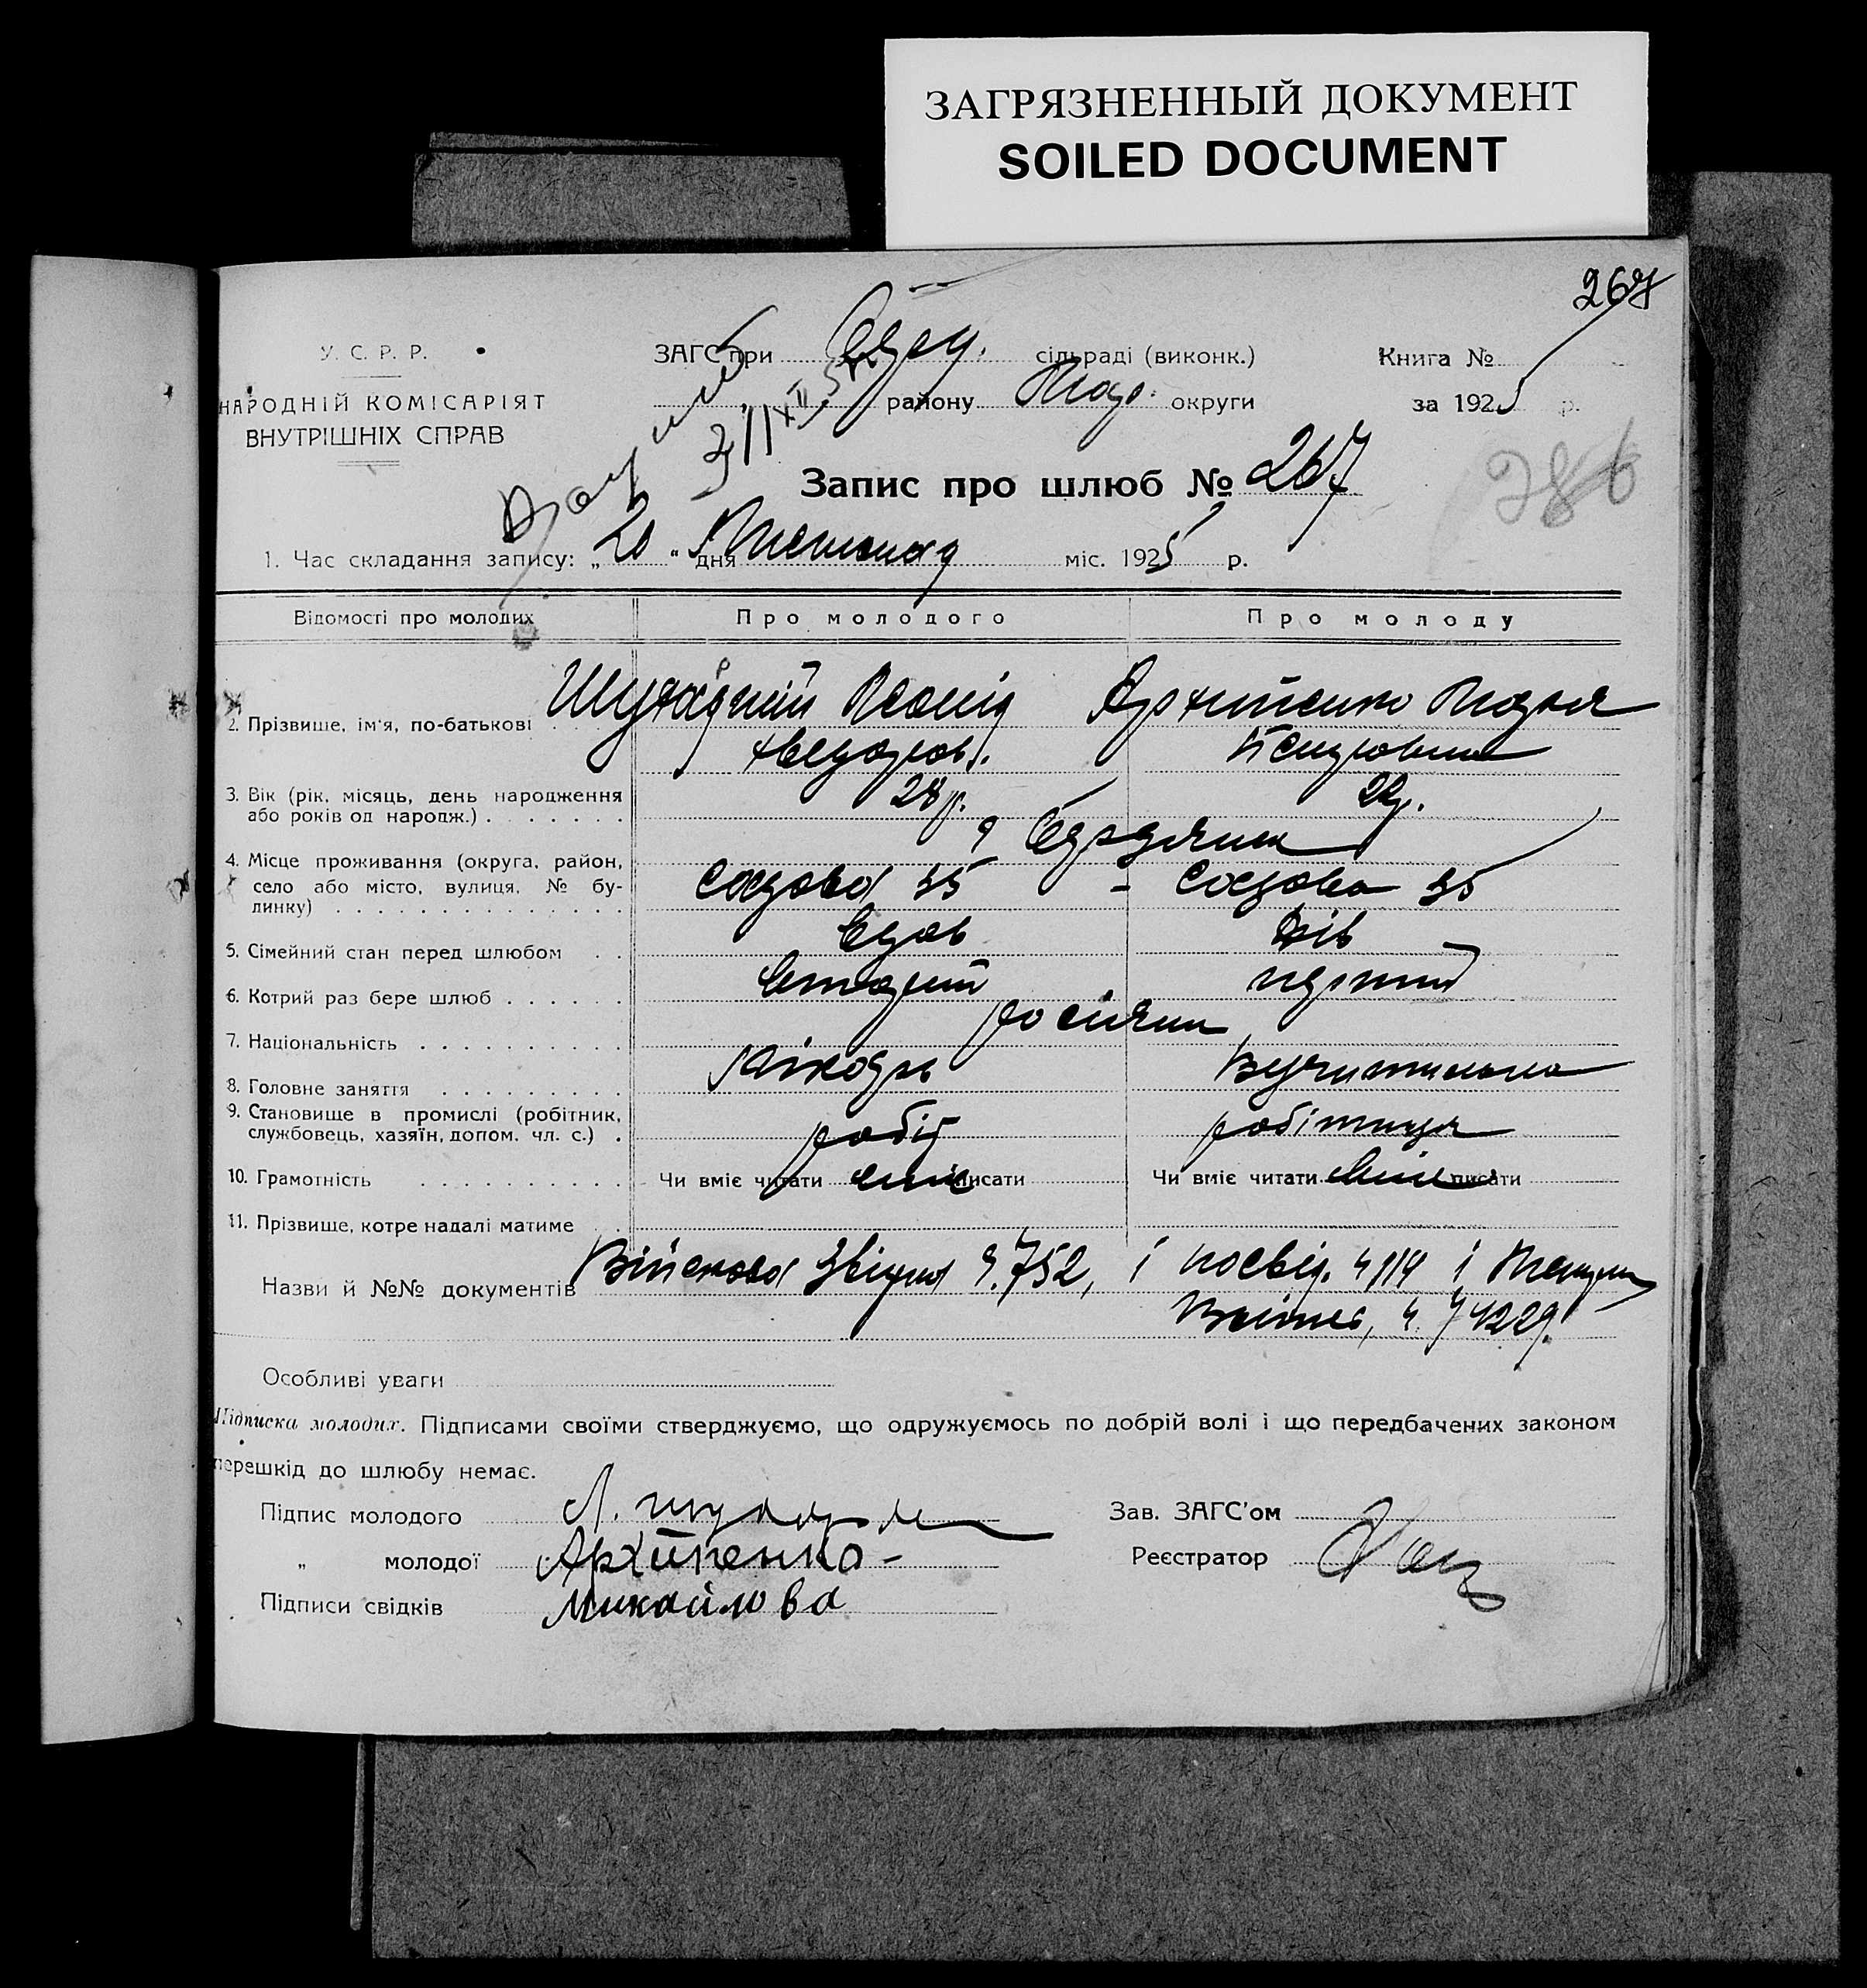 ЗАГРЯЗНЕННЫЙ ДОКУМЕНТ
SOILED DOCUMENT
267
У. С. Р. Р.
НАРОДНІЙ КОМІСАРІЯТ
ВНУТРІШНІХ СПРАВ
ЗАГС при сільраді (виконк.)
району округи
Книга №
за 1925 р.
Запис про шлюб № 267
286
1. Час складання запису: „20" дня Листопад міс. 1925 р.
Відомості про молодих Про молодого Про молоду
2. Прізвище, ім'я, по-батькові Леонід Архипенко
Федоров.
3. Вік (рік, місяць, день народження 28 р. 22 р.
або років од народж.)
4. Місце проживання (округа, район,
село або місто, вулиця, № бу- Садова 35 - Садова 35
динку)
5. Сімейний стан перед шлюбом Вдов Дів
6. Котрий раз бере шлюб перший
7. Національність росіяни
8. Головне заняття Лікарь Вучителька
9. Становище в промислі (робітник,
службовець, хазяїн, допом. чл. с.) робіт робітниця
10. Грамотність Чи вміє читати вміє писати Чи вміє читати вміє писати
11. Прізвище, котре надалі матиме
Назви й №№ документів Військова 752, і посвід. ч 1119 і
Особливі уваги
Підписка молодих. Підписами своїми стверджуємо, що одружуємось по добрій волі і що передбачених законом
перешкід до шлюбу немає.
Підпис молодого Л. Зав. ЗАГС'ом
„ молодої Архипенко - Реєстратор
Підписи свідків Михайлова